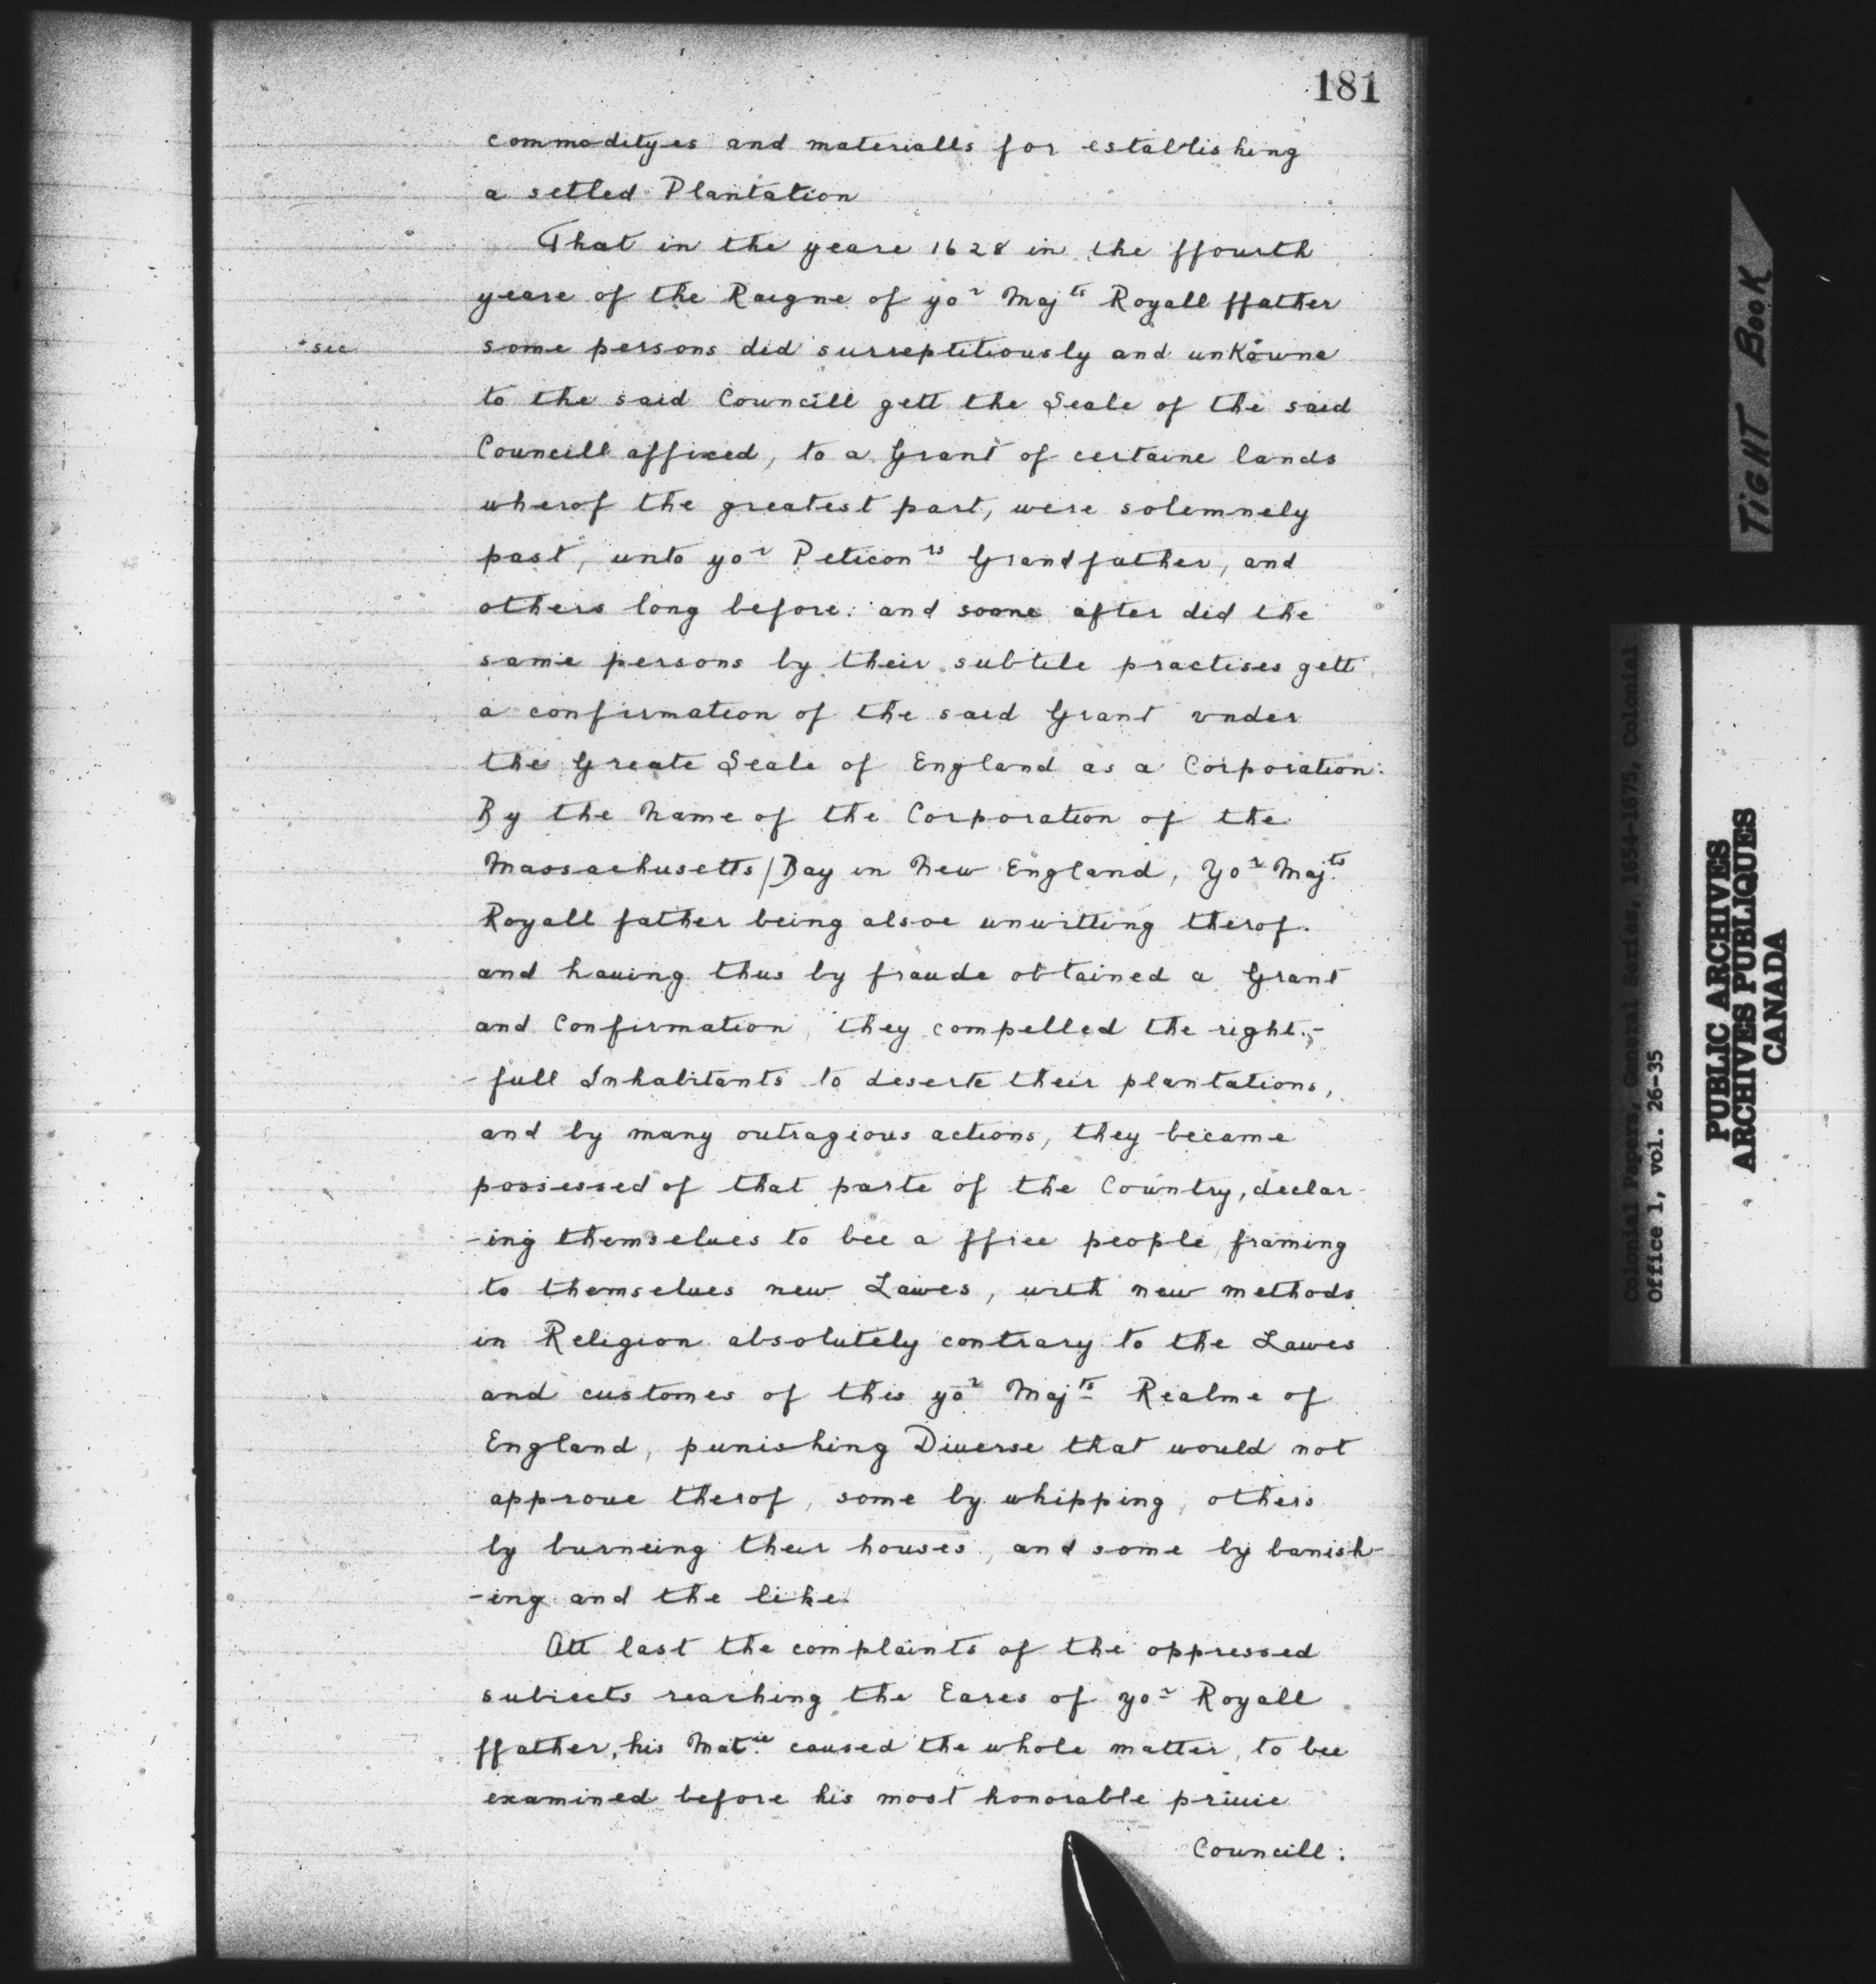 181
commodityes and materialls for establishing
a setled Plantation
That in the yeare 1628 in the ffourth
yeare of the Raigne of yor Majts Royall ffather
*sic
some persons did surreptitiously and unKowne
to the said Councill gett the Seale of the said
Councill affixed, to a Grant of certaine lands
wherof the greatest part, were solemnely
past, unto yor Peticonrs Grandfather, and
others long before: and soone after did the
same persons by their subtile practises gett
a confirmation of the said Grant vnder
the Greate Seale of England as a Corporation:
By the Name of the Corporation of the
Massachusetts/Bay in New England, Yor Majts
Royall father being alsoe unwitting therof.
and hauing thus by fraude obtained a Grant
and Confirmation, they compelled the right,-
-full Inhabitants to deserte their plantations,
and by many outragious actions, they became
possessed of that parte of the Country, declar-
-ing themselues to bee a ffree people, framing
to themselues new Lawes, with new methods
in Religion absolutely contrary to the Lawes
and customes of this yor Majts Realme of
England, punishing Diuerse that would not
approue therof, some by whipping, others
by burneing their houses, and some by banish-
-ing and the like.
Att last the complaints of the oppressed
subiects reaching the Eares of yor Royall
ffather, his Matie caused the whole matter, to bee
examined before his most honorable priuie
Councill:
TIGHT BOOK
Colonial Papers, General Series, 1654-1675, Colonial
Office 1, vol. 26-35
PUBLIC ARCHIVES
ARCHIVES PUBLIQUES
CANADA